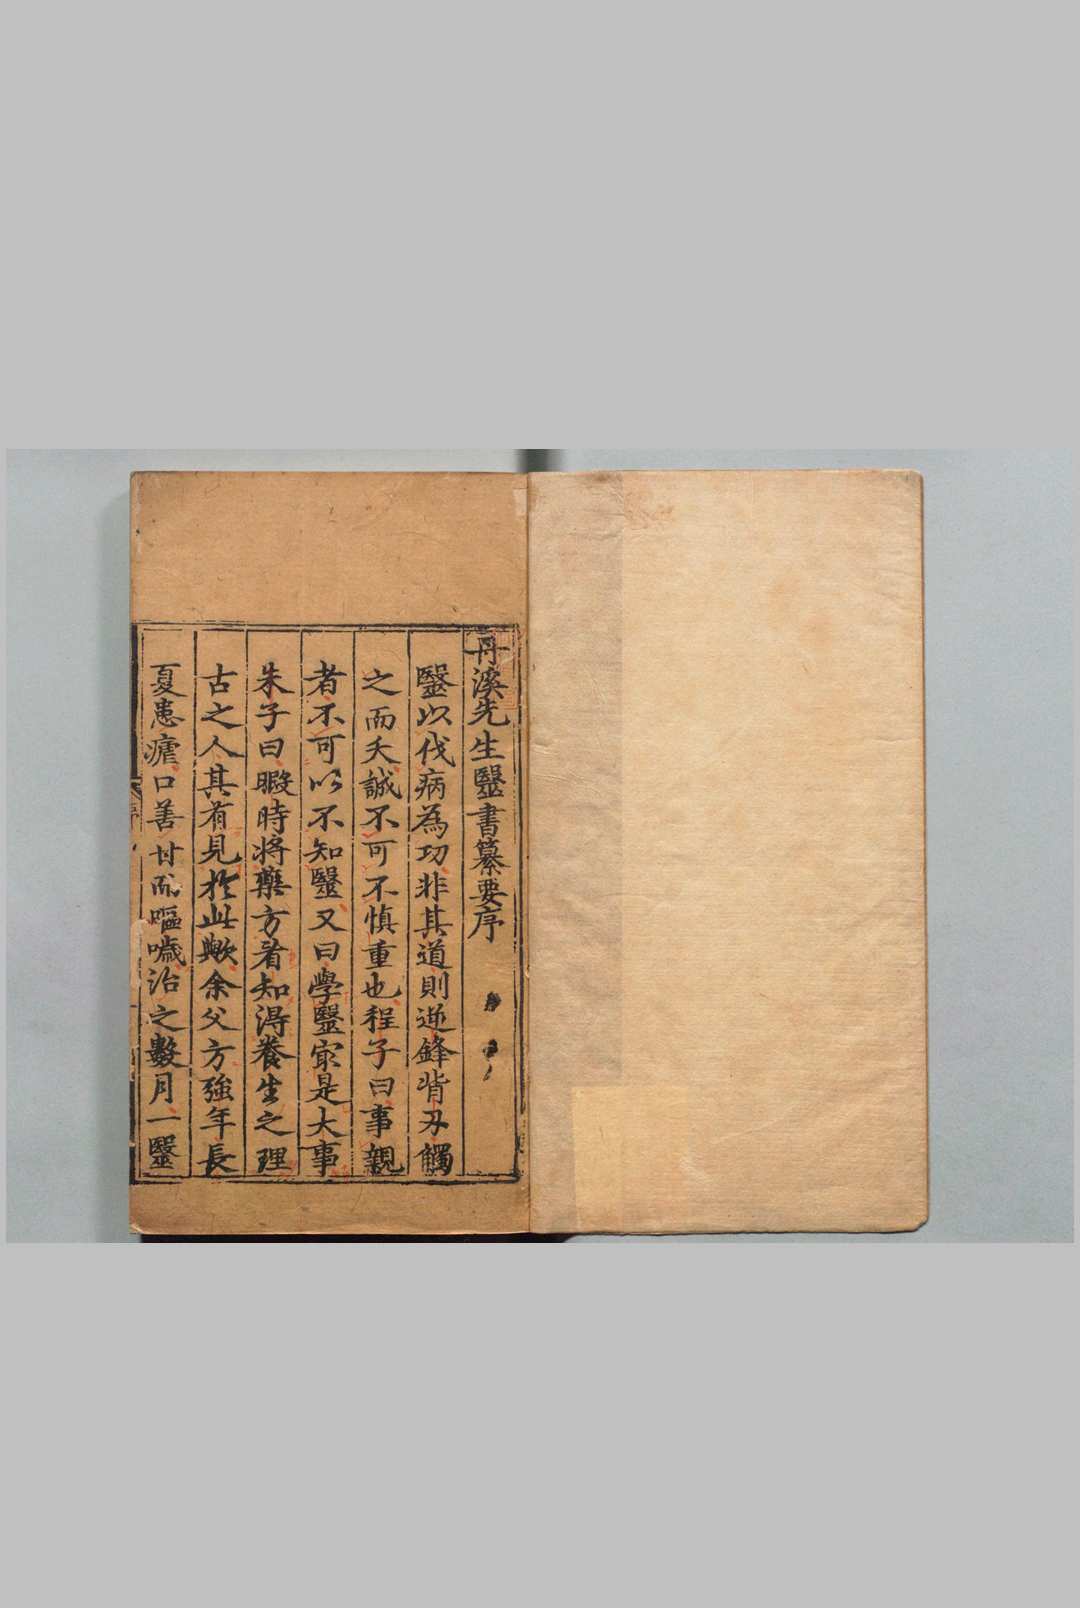 丹溪先生醫書纂要序
醫以伐病為功非其道則逆鋒背刃觸
之而夭誠不可不慎重也程子曰事親
者不可以不知醫又曰學醫最是大事
朱子曰暇時將藥方看知得養生之理
古之人其有見於此歟余父方強年長
夏患瘧口善甘而嘔噦治之數月一醫
序